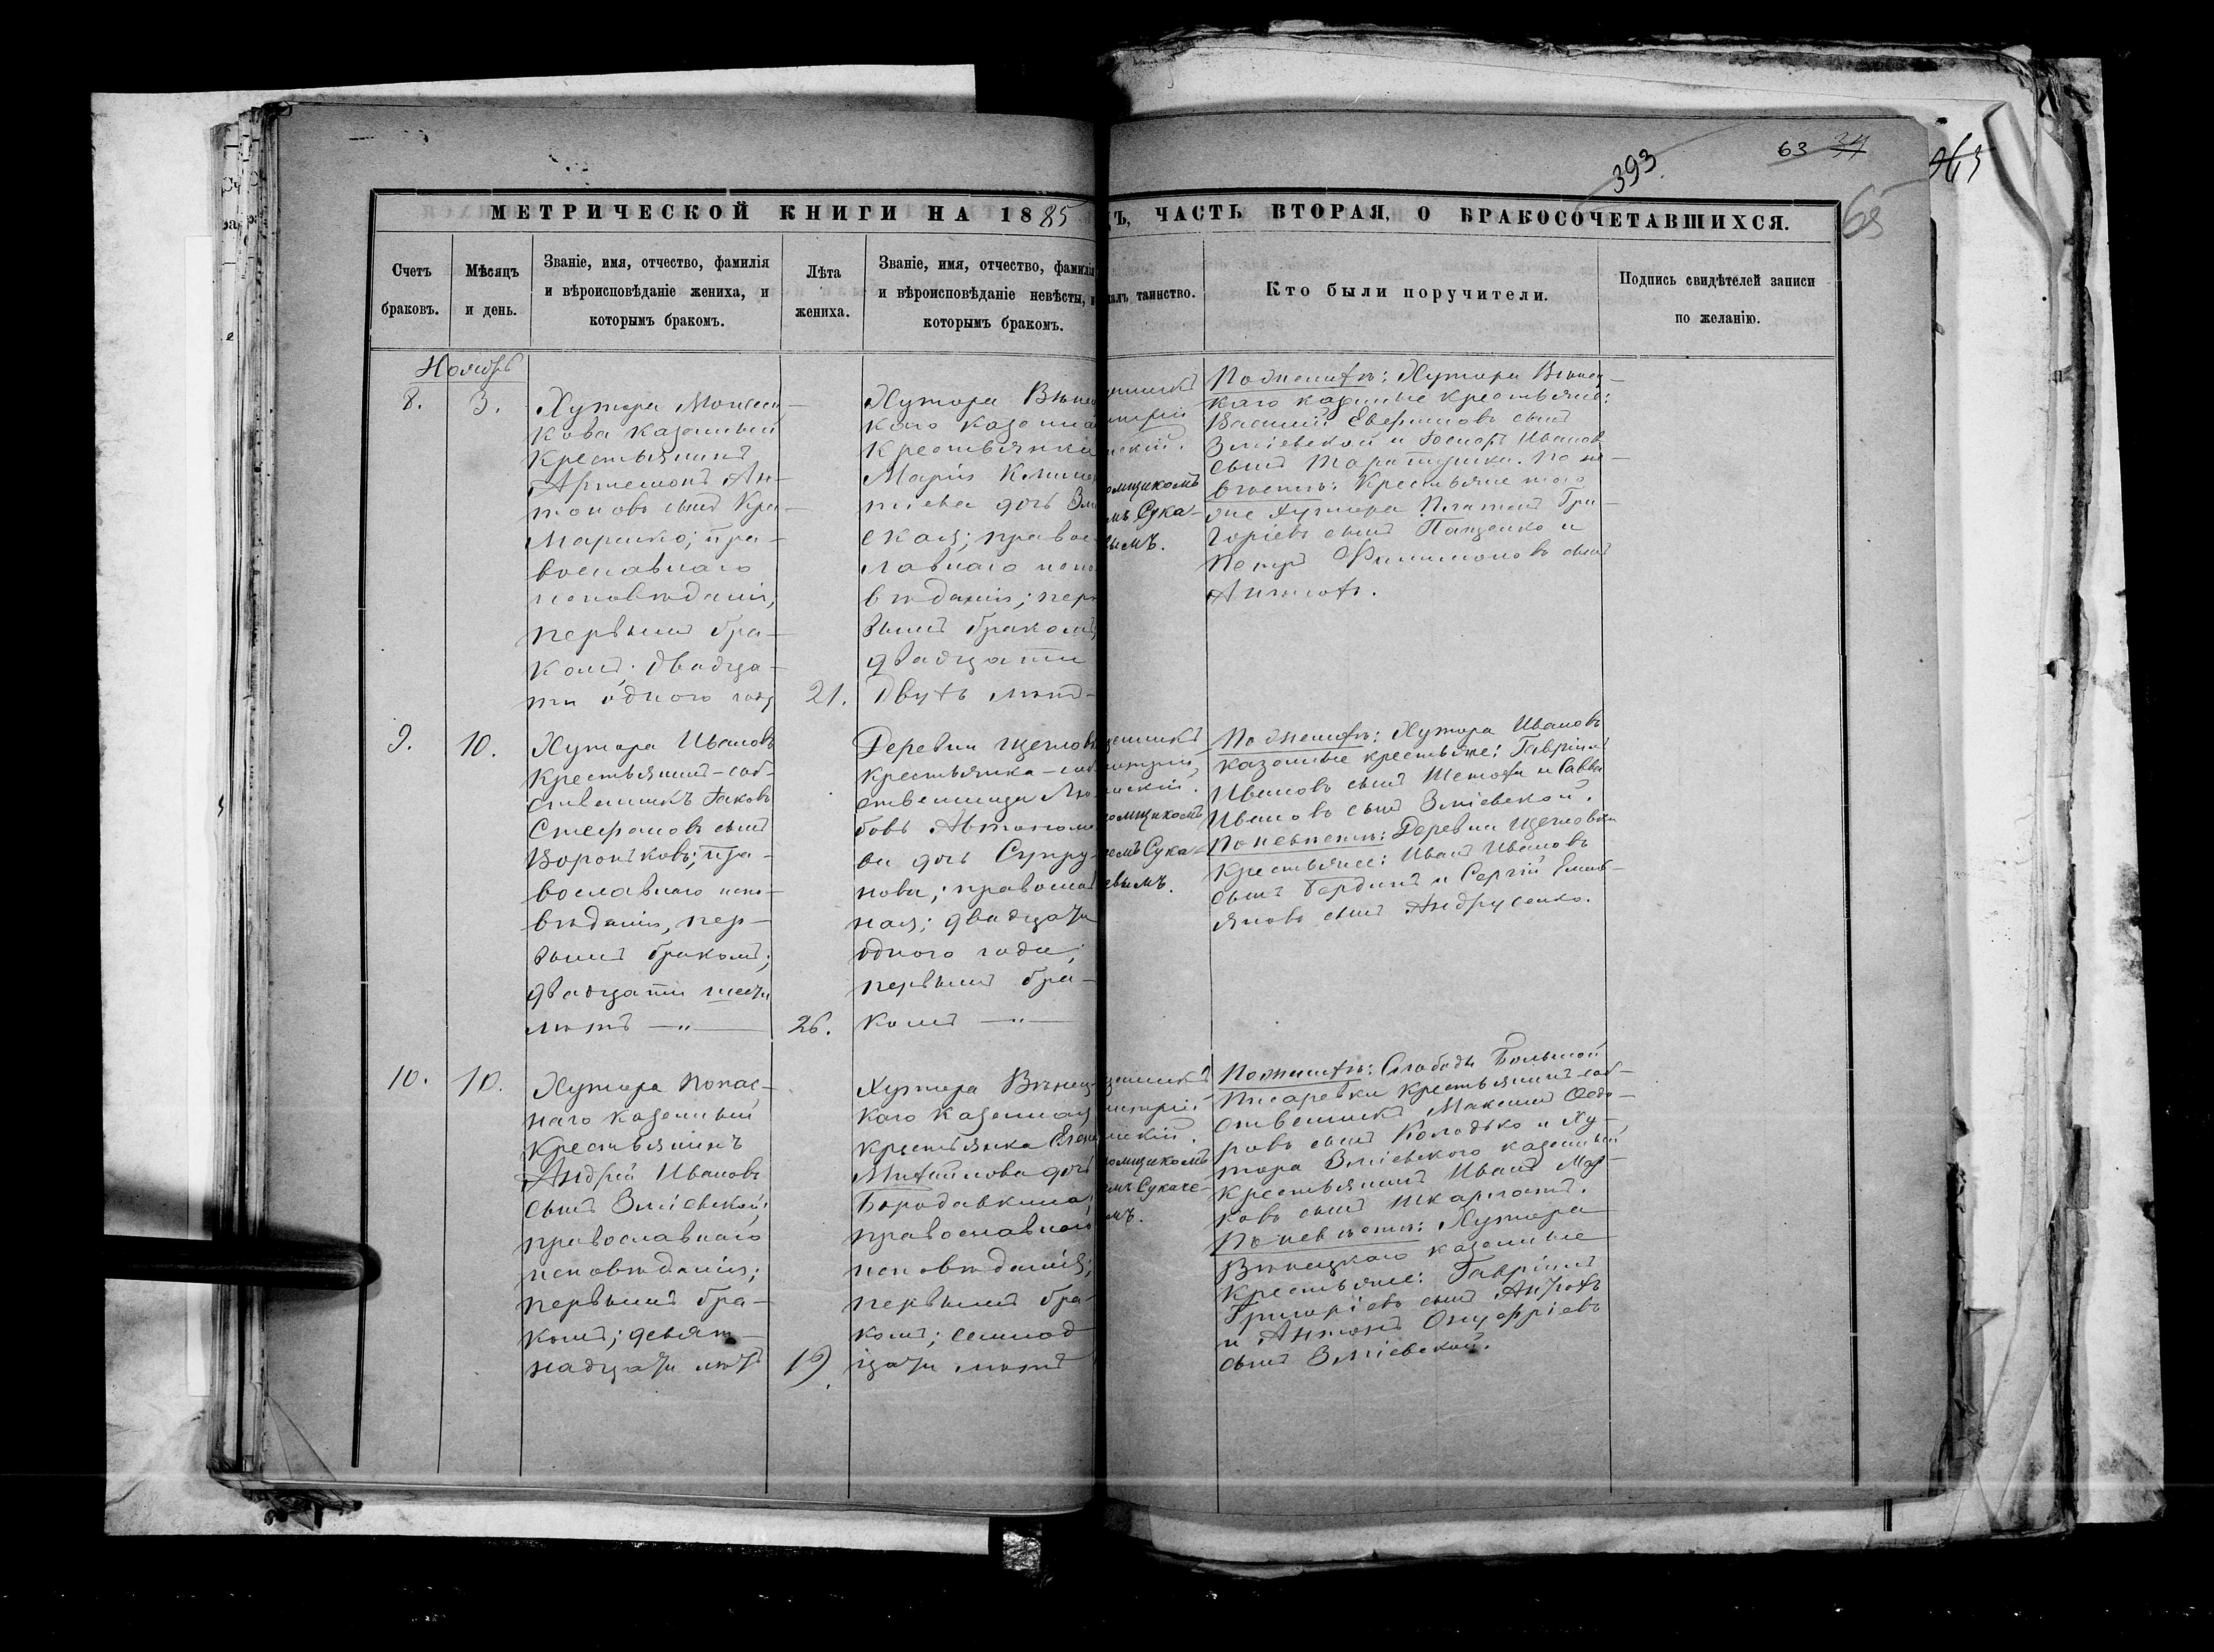 393.
63 34
65
МЕТРИЧЕСКОЙ КНИГИ НА 1885
Ъ, ЧАСТЬ ВТОРАЯ, О БРАКОСОЧЕТАВШИХСЯ.
Счетъ
браковъ.
Мѣсяцъ
и день.
Званіе, имя, отчество, фамилія
и вѣроисповѣданіе жениха, и
которымъ бракомъ.
Лѣта
жениха.
Званіе, имя, отчество, фамилія
и вѣроисповѣданіе невѣсты, и
которымъ бракомъ.
алъ таинство.
Кто были поручители.
Подпись свидѣтелей записи
по желанію.
Ноябрь
8.
3.
Хутора
кова казенный
крестьянинъ
Артемонъ Ан-
тоновъ сынъ Кра-
маренко; пра-
вославнаго
исповѣданія,
первымъ бра-
комъ; двадца-
ти одного года
21.
Хутора Вѣнец
каго казенная
крестьянка
Марія
тіева дочь Змі
ская; правос-
лавнаго испо
вѣданія; пер
вымъ бракомъ
двадцати
двухъ лѣтъ-
омщикомъ
мъ Сука-
вымъ.
По женихѣ: Хутора Вѣнец-
каго казенные крестьяне:
Василій сынъ
Зміевской и Іосифъ Ивановъ
сынъ Таратушка. По не-
вѣстѣ: Крестьяне того
же хутора Платонъ Гри-
горіевъ сынъ Пащенко и
Петръ Филимоновъ сынъ
9.
10.
Хутора Ивановъ
крестьянинъ-соб-
ственникъ Іаковъ
Стефановъ сынъ
Воронковъ; пра-
вославнаго испо-
вѣданія, пер-
вымъ бракомъ;
двадцати шести
лѣтъ — „ —
26.
Деревни Щегловк
крестьянка-соб
ственница Лю-
бовь Автоном
ва дочь Супру-
нова; православ
ная; двадцати
одного года;
первымъ бра-
комъ — „ —
омщикомъ
емъ Сука-
евымъ.
По женихѣ: Хутора Ивановъ
казенные крестьяне: Гавріилъ
Ивановъ сынъ и Савва
Ивановъ сынъ Зміевской.
По невѣстѣ: Деревни Щегловки
Крестьяне: Иванъ Ивановъ
сынъ Бардинъ и Сергій Емель-
яновъ сынъ Андрусенко.
10.
10.
Хутора Попас-
наго казенный
крестьянинъ
Андрей Ивановъ
сынъ Зміевской;
православнаго
исповѣданія;
первымъ бра-
комъ; девят-
надцати лѣтъ
19.
Хутора Вѣнец-
каго казенная
крестьянка Елен
Михайлова дочь
Бородавкина;
православнаго
исповѣданія;
первымъ бра-
комъ; семнад
цати лѣтъ
омщикомъ
емъ Сукаче-
мъ.
По женихѣ: Слободы Большой
Писаревки крестьянинъ-соб-
ственникъ Максимъ Ѳедо-
ровъ сынъ Колодько и Ху-
тора Зміевского казенный
крестьянинъ Иванъ Мар-
ковъ сынъ
По невѣстѣ: Хутора
Вѣнецкаго казенные
крестьяне: Гавріилъ
Григоріевъ сынъ
и Антонъ Онуфріевъ
сынъ Зміевской.